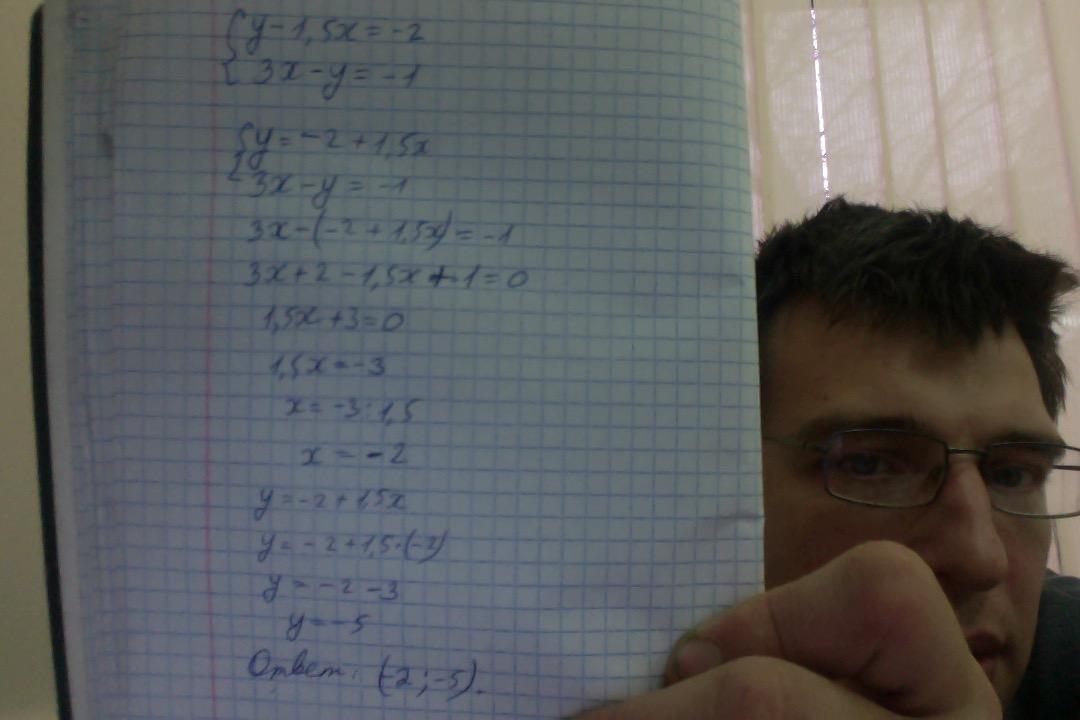 { y - 1,5x = -2
3x - y = -1
{ y = -2 + 1,5x
3x - y = -1
3x - (-2 + 1,5x) = -1
3x + 2 - 1,5x + 1 = 0
1,5x + 3 = 0
1,5x = -3
x = -3 : 1,5
x = -2
y = -2 + 1,5x
y = -2 + 1,5 · (-2)
y = -2 - 3
y = -5
Ответ: (-2 ; -5).